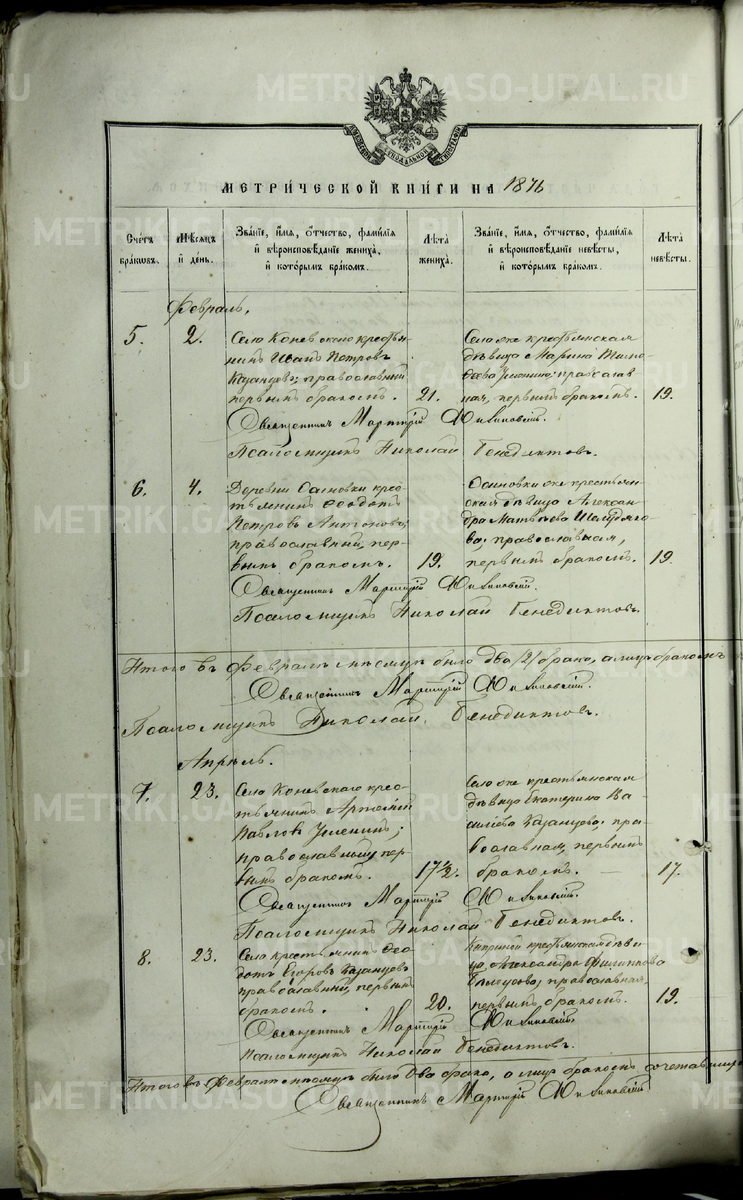 METRIKI.GASO-URAL.RU
МЕТРИЧЕСКОЙ КНИГИ НА 1876
Счетъ браковъ.
Мѣсяцъ и день.
Званіе, имя, отчество, фамилія и вѣроисповѣданіе жениха, и которымъ бракомъ.
Лѣта жениха.
Званіе, имя, отчество, фамилія и вѣроисповѣданіе невѣсты, и которымъ бракомъ.
Лѣта невѣсты.
Февраль.
5. 2.
Село Коневскаго кресть-
янинъ Иванъ Петровъ
Казанцевъ; православный
первымъ бракомъ. 21.
Село же крестьянская
дѣвица Марина Тимо-
феева; православ
ная, первымъ бракомъ. 19.
Священникъ Мартирій
Псаломщикъ Николай Бенедиктовъ.
6. 4.
Деревни Осиновки крес-
тьянинъ Ѳеодотъ
Петровъ Антоновъ,
православный, пер-
вымъ бракомъ. 19.
Осиновки же крестьян-
ская дѣвица Алексан-
дра Матвѣева
православная,
первымъ бракомъ. 19.
Священникъ Мартирій
Псаломщикъ Николай Бенедиктовъ.
Итого въ Февралѣ мѣсяцѣ было два /2/ брака, а лицъ бракомъ
Священникъ Мартирій
Псаломщикъ Николай Бенедиктовъ.
Апрѣль.
7. 23.
Села Коневскаго крес-
тьянинъ Артемій
Павловъ Зуленинъ;
православный, пер-
вымъ бракомъ. 17½.
Село же крестьянская
дѣвица Екатерина Ва-
силіева Казанцева, пра-
вославная, первымъ
бракомъ. 17.
Священникъ Мартирій
Псаломщикъ Николай Бенедиктовъ.
8. 23.
Село крестьянинъ Ѳео-
дотъ Егоровъ Казанцевъ
православный, первымъ
бракомъ. 20.
крестьянская дѣви
ца Александра Филиппова
православная,
первымъ бракомъ. 19.
Священникъ Мартирій
Псаломщикъ Николай Бенедиктовъ.
Итого въ мѣсяцѣ было два брака, а лицъ бракомъ
Священникъ Мартирій